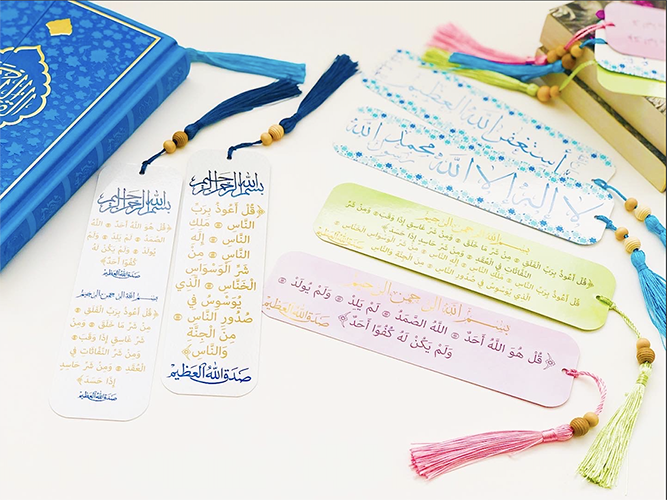 بسم الله الرحمن الرحيم
﴿قُلْ هُوَ اللَّهُ أَحَدٌ ۞ اللَّهُ
الصَّمَدُ ۞ لَمْ يَلِدْ ۞ وَلَمْ
يُولَدْ ۞ وَلَمْ يَكُنْ لَهُ
كُفُوًا أَحَدٌ﴾
صدق الله العظيم
بسم الله الرحمن الرحيم
﴿قُلْ أَعُوذُ بِرَبِّ الْفَلَقِ ۞
مِنْ شَرِّ مَا خَلَقَ ۞ وَمِنْ
شَرِّ غَاسِقٍ إِذَا وَقَبَ ۞
وَمِنْ شَرِّ النَّفَّاثَاتِ فِي
الْعُقَدِ ۞ وَمِنْ شَرِّ حَاسِدٍ
إِذَا حَسَدَ﴾
صدق الله العظيم
بسم الله الرحمن الرحيم
﴿قُلْ أَعُوذُ بِرَبِّ
النَّاسِ ۞ مَلِكِ
النَّاسِ ۞ إِلَهِ
النَّاسِ ۞ مِنْ
شَرِّ الْوَسْوَاسِ
الْخَنَّاسِ ۞ الَّذِي
يُوَسْوِسُ فِي
صُدُورِ النَّاسِ ۞
مِنَ الْجِنَّةِ
وَالنَّاسِ﴾
صدق الله العظيم
أستغفر الله العظيم
لا إله إلا الله محمد رسول الله
بسم الله الرحمن الرحيم
قُلْ أَعُوذُ بِرَبِّ الْفَلَقِ ۞ مِنْ شَرِّ مَا خَلَقَ ۞ وَمِنْ شَرِّ غَاسِقٍ إِذَا وَقَبَ ۞ وَمِنْ شَرِّ
النَّفَّاثَاتِ فِي الْعُقَدِ ۞ وَمِنْ شَرِّ حَاسِدٍ إِذَا حَسَدَ﴾
بسم الله الرحمن الرحيم
﴿قُلْ هُوَ اللَّهُ أَحَدٌ ۞ اللَّهُ الصَّمَدُ ۞ لَمْ يَلِدْ ۞ وَلَمْ يُولَدْ ۞
وَلَمْ يَكُنْ لَهُ كُفُوًا أَحَدٌ﴾ صدق الله العظيم